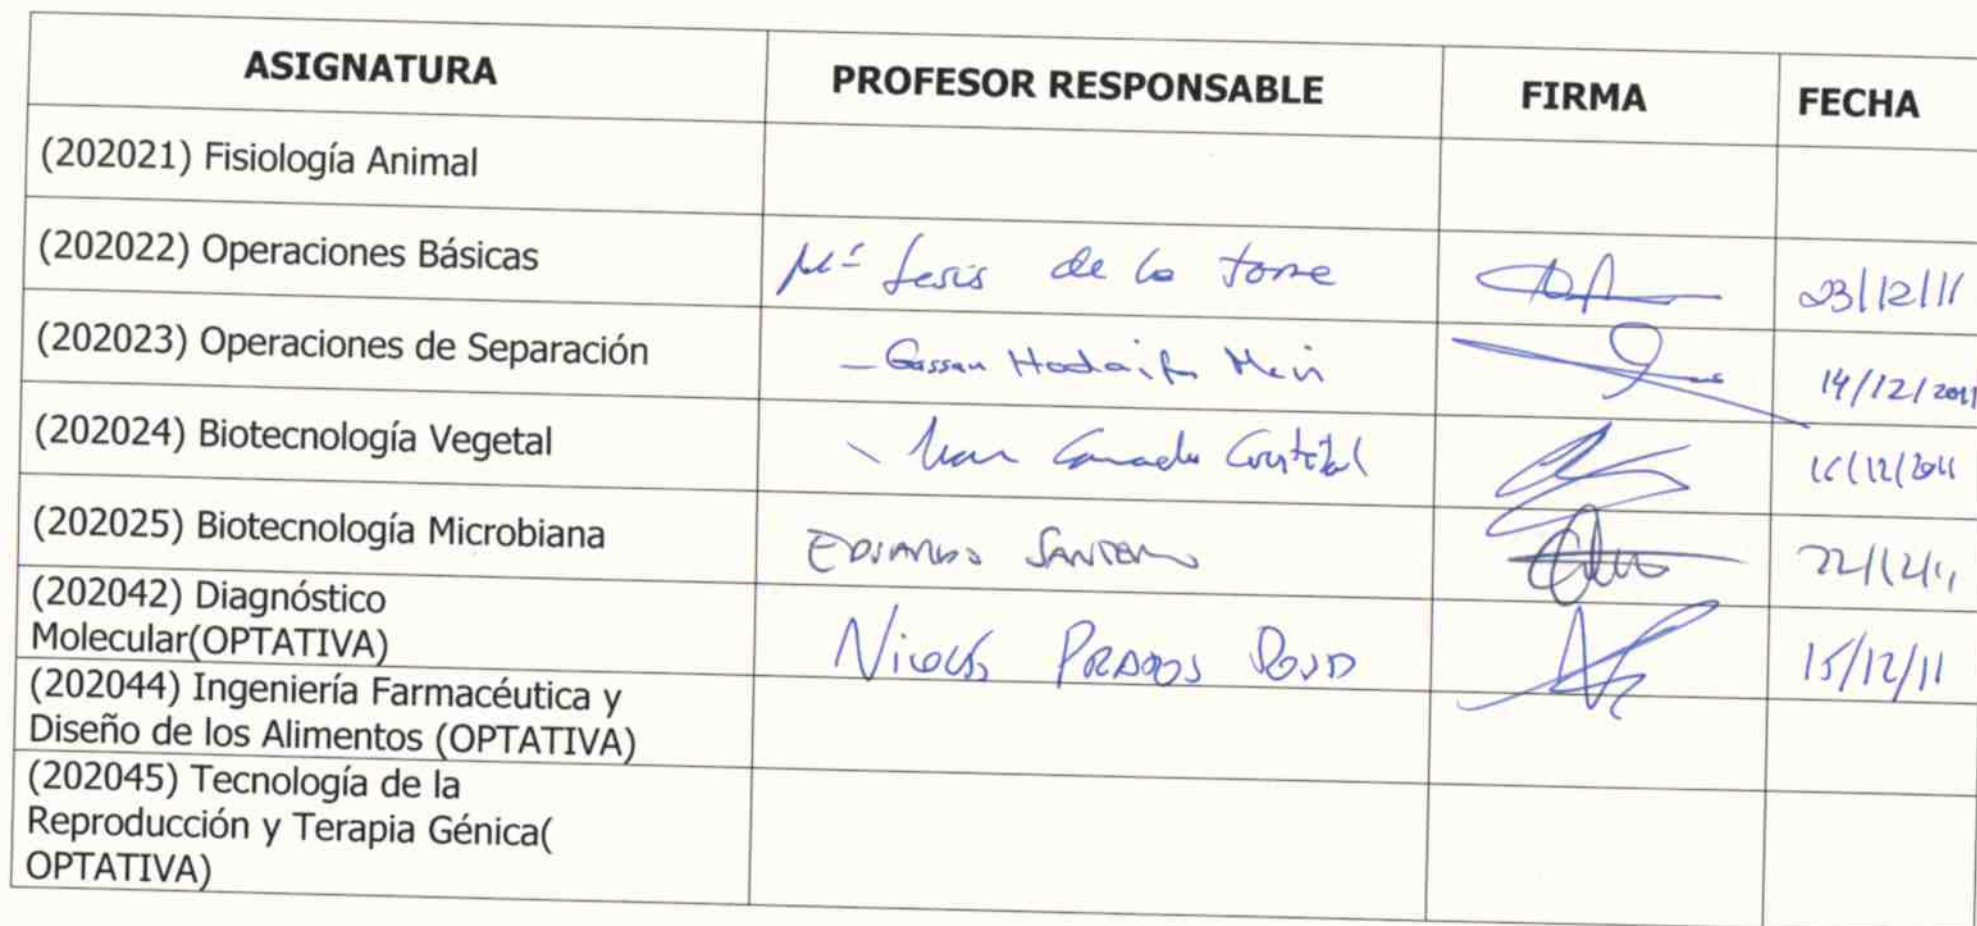 ASIGNATURA PROFESOR RESPONSABLE FIRMA FECHA
(202021) Fisiología Animal
(202022) Operaciones Básicas Mª Jesús de la Torre 23/12/11
(202023) Operaciones de Separación - Gassan Hodaifa 14/12/2011
(202024) Biotecnología Vegetal
(202025) Biotecnología Microbiana EDUARDO 22/12/11
(202042) Diagnóstico
Molecular(OPTATIVA)
Nicolás PRADOS 15/12/11
(202044) Ingeniería Farmacéutica y
Diseño de los Alimentos (OPTATIVA)
(202045) Tecnología de la
Reproducción y Terapia Génica(
OPTATIVA)